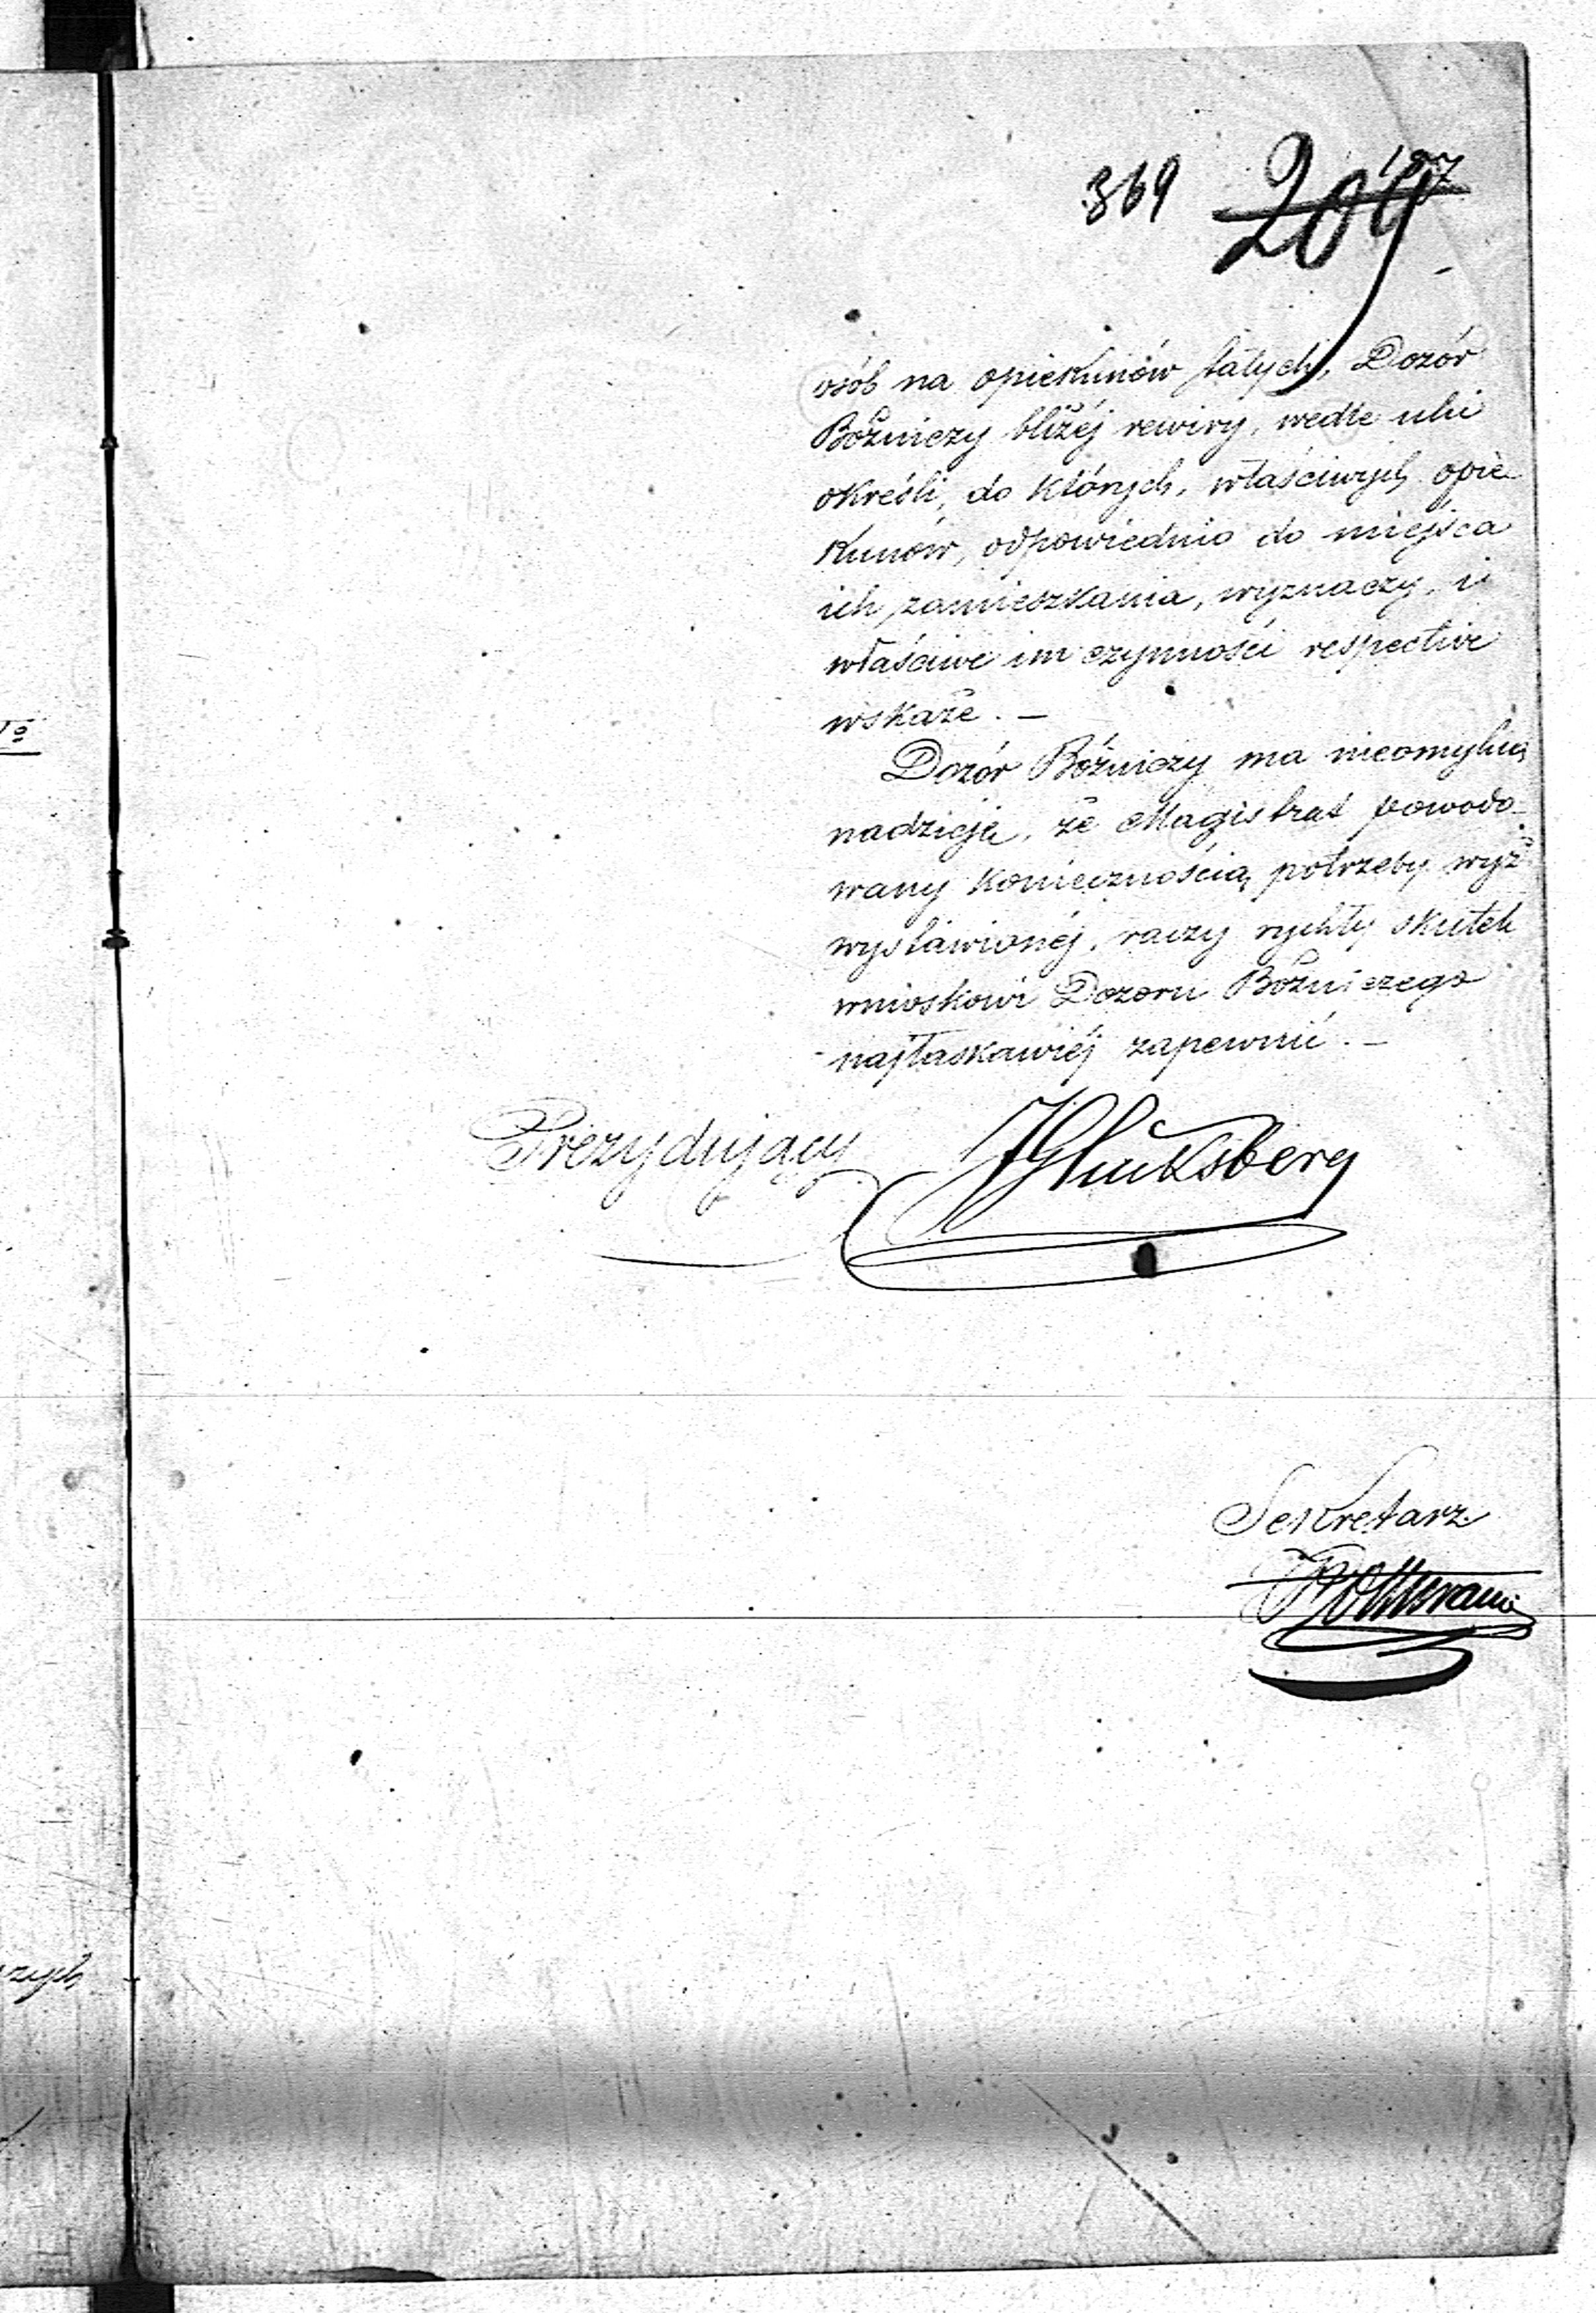 369 209 197
osób na opiekunów stałych, Dozór
Bożniczy bliżéj rewiry, wedle ulic
określi, do których, właściwych opie-
kunów, odpowiednio do miejsca
ich zamieszkania, wyznaczy, i
właściwe im czynności respective
wskaże. —
Dozór Bóżniczy ma nieomylną
nadzieję, że Magistrat powodo-
wany koniecznością potrzeby wyż
wystawionéj, raczy rychły skutek
wnioskowi Dozoru Bóżniczego
najłaskawiéj zapewnić. —
Prezydujący JGluksberg
Sekretarz